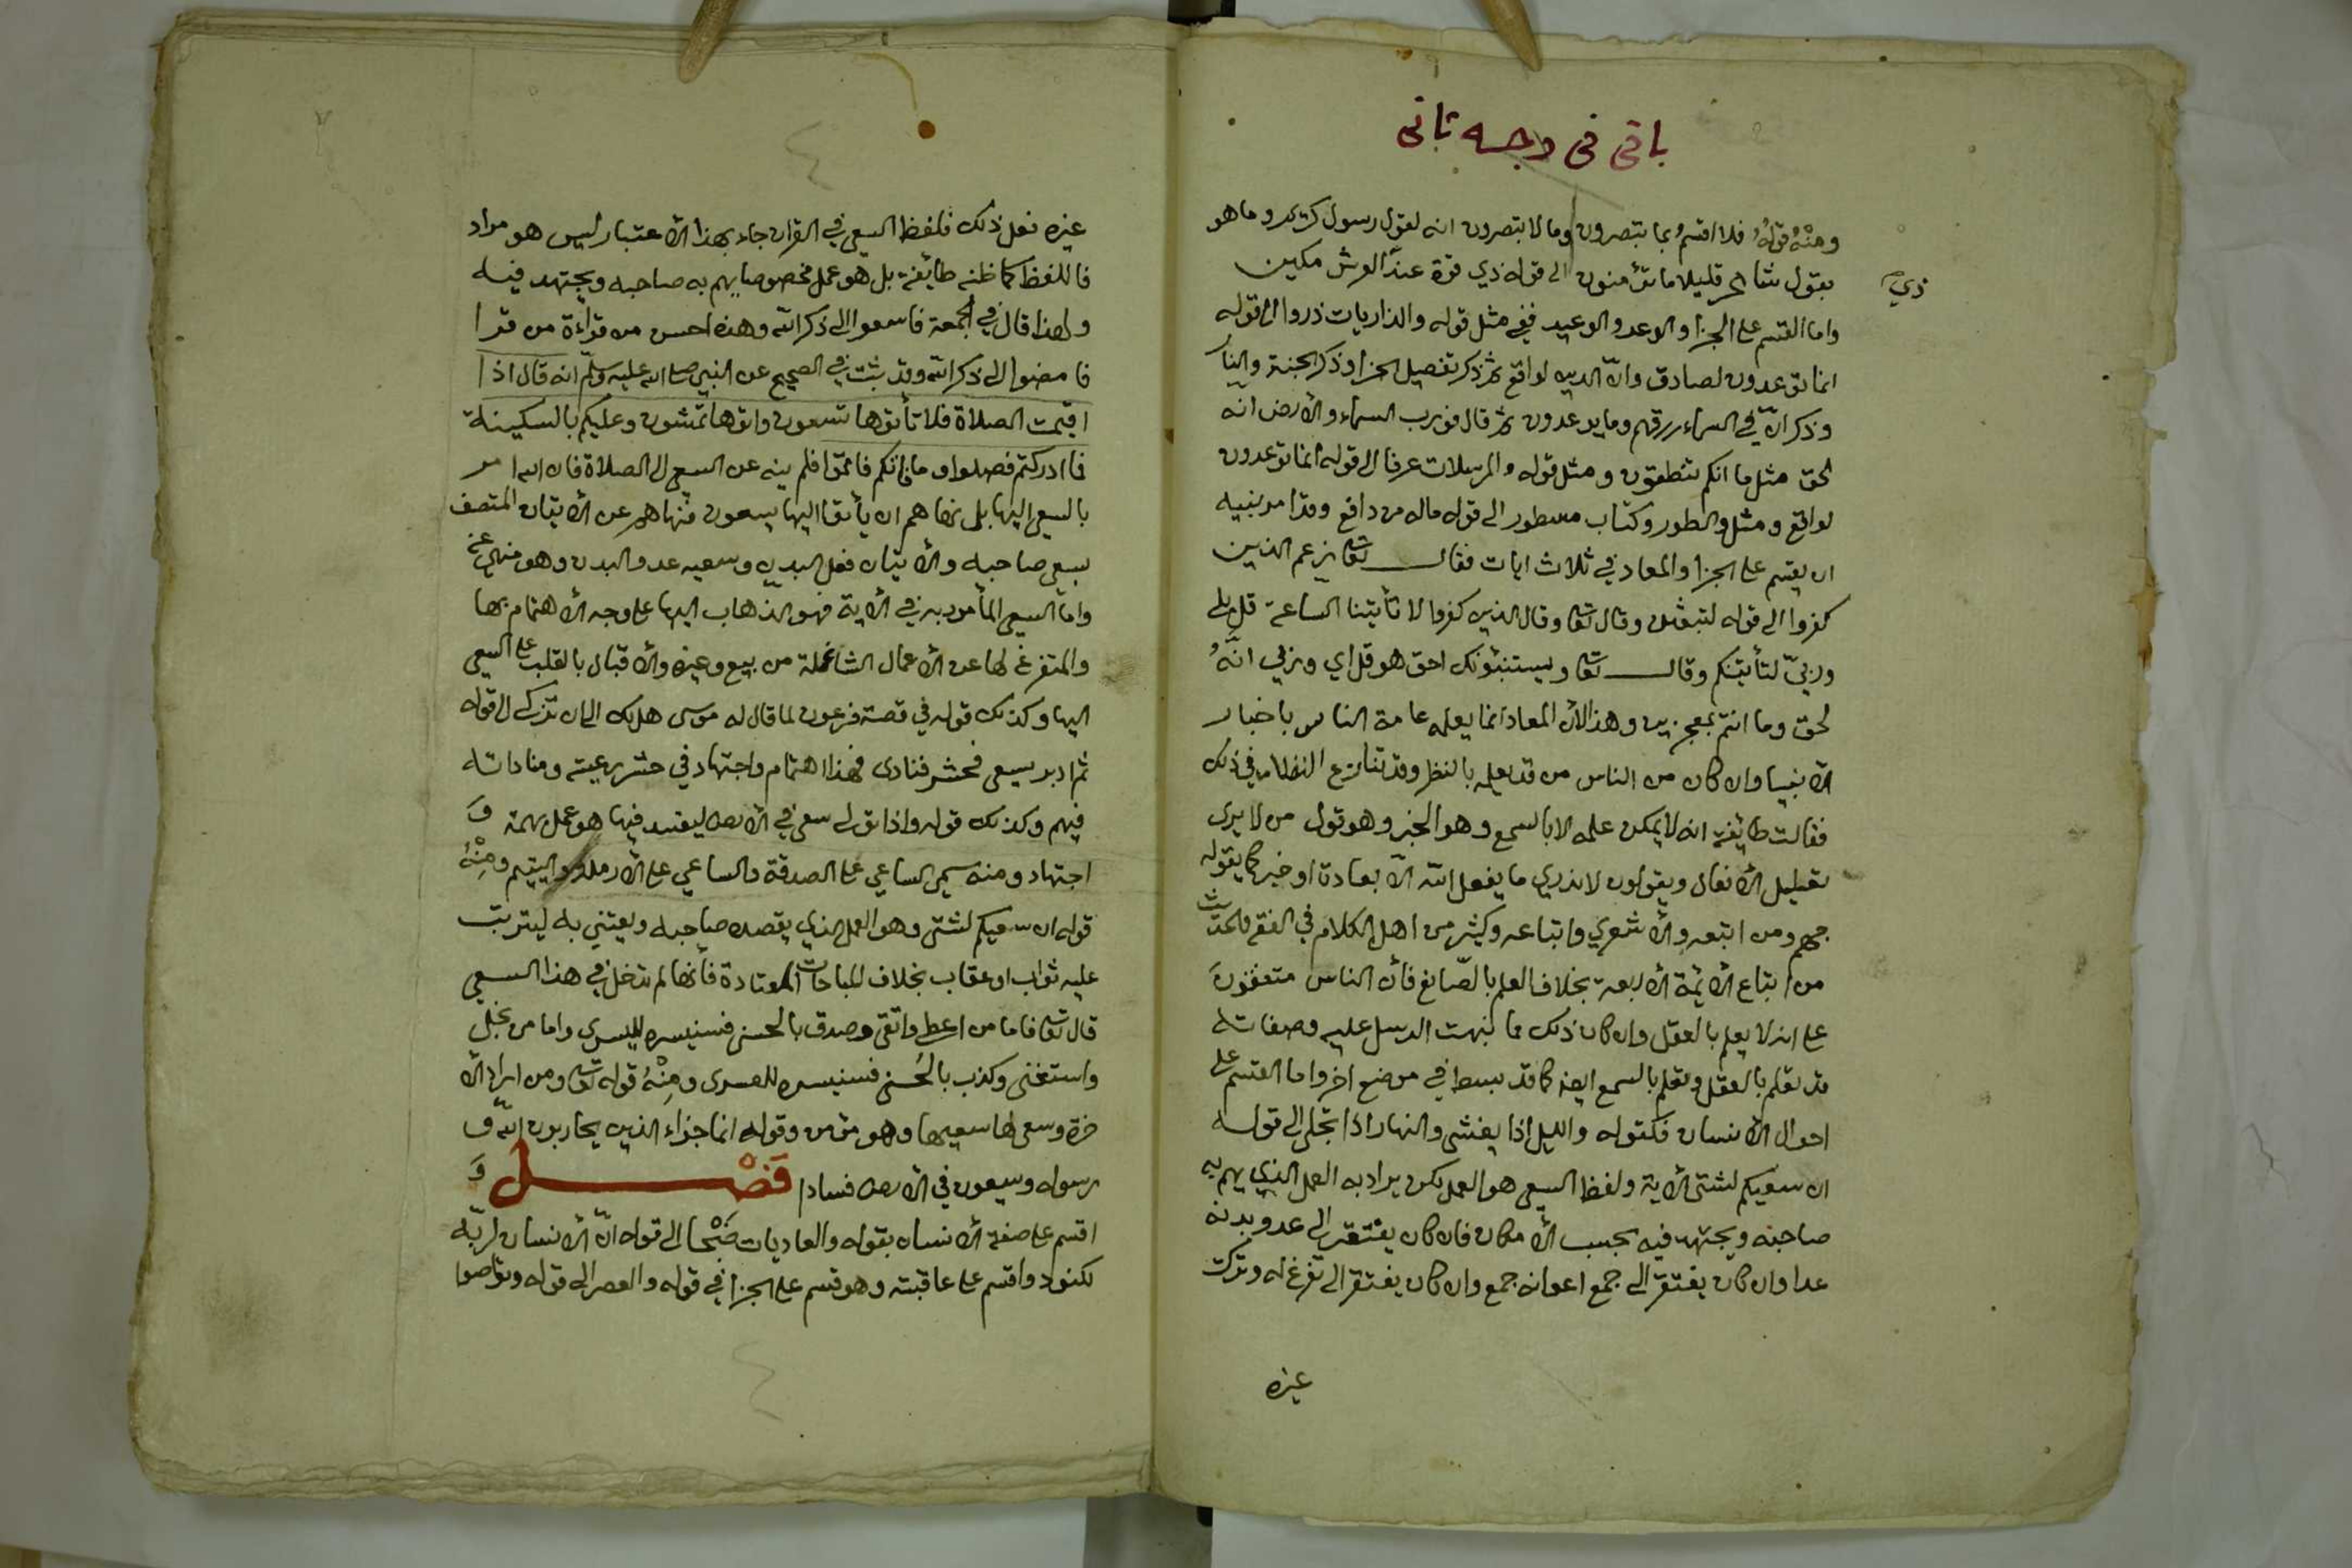 باقى فى وجه تانى
ومنْهُ قولهُ فلا اقسمُ بما تبصرون وما لا تبصرون انه لقول رسول كريم وما هو
بقول شاعر قليلا ما تؤمنون الى قوله ذي قوة عند العرش مكين
ذي
واما القسم على الجزا والوعد والوعيد ففي مثل قوله والذاريات ذروا الى قوله
انما توعدون لصادق وانّ الدين لواقع ثم ذكر تفصيل الجزا وذكر الجنة والنار
وذكر انّ في السماء رزقهم وما يوعدون ثم قال فورب السماء والأرض انه
لحق مثل ما انكم تنطقون ومثل قوله والمرسلات عرفا الى قوله انما توعدون
لواقع ومثل والطور وكتاب مسطور الى قوله ماله من دافع وقد امر نبيه
ان يقسم على الجزا والمعاد في ثلاث ايات فقال تعالى زعم الذين
كفروا الى قوله لتبعثن وقال تعالى وقال الذين كفروا لا تأتينا الساعة قل بلى
وربيّ لتأتينكم وقال تعالى ويستنبئونك احق هو قل اي وربي انهُ
لحق وما انتم بمعجزين وهذا لأن المعاد انما يعلمه عامة الناس باخبار
الأنبيا وان كان من الناس من قد يعلمه بالنظر وقد تنازع النظار في ذلك
فقالت طائفة انه لا يمكن علمه الا بالسمع وهو الخبر وهو قول من لا يرى
تعليل الأفعال ويقولون لا ندري ما يفعل الله الّا بعادة او خبر كما يقوله
جهم ومن اتبعه والأشعري واتباعه وكثير من اهل الكلام في الفقه والحديث
من اتباع الأئمة الأربعة بخلاف العلم بالصّانع فأن الناس متفقونَ
على انه لا يعلم بالعقل وان كان ذلك مما نبهت الرسل عليه وصفاته
قد تعلم بالعقل وتعلم بالسمع ايضا كما قد بسط في موضع اخر واما القسم على
احوال الأنسان فكقوله والليل اذا يغشى والنهار اذا تجلى الى قوله
ان سعيكم لشتى الأية ولفظ السعي هو العمل لكن يراد به العمل الذي يهم به
صاحبه ويجتهد فيه بحسب الأمكان فان كان يفتقر الى عدو بدنه
عدا وان كان يفتقر الى جمع اعوانه جمع وان كان يفتقر الى تفرغ له وترك
غيره
غيره فعل ذلك فلفظ السعي في القران جاء بهذا الأعتبار ليس هو مراد
فا للفظ كما ظنه طائفة بل هو عمل مخصوص يهم به صاحبه ويجتهد فيه
ولهذا قال في الجمعة فاسعوا الى ذكر الله وهذه احسن من قراءة من قرا
فامضوا الى ذكر الله وقد ثبت في الصحيح عن النبي صلى الله عليه وسلّم انه قال اذا
اقيمت الصلاة فلا تأتوها تسعون واتوها تمشون وعليكم بالسكينة
فما ادركتم فصلوا وما فاتكم فاتموا فلم ينه عن السعي الى الصلاة فان الله امر
بالسعي اليها بل نهاهم ان يأتوا اليها يسعون فنهاهم عن الأتيان المتصف
بسعي صاحبه والأتيان فعل البدن وسعيه عدو البدن وهو منهي عنه
واما السعي المأمور به في الأية فهو الذهاب اليها على وجه الأهتمام بها
والتفرغ لها عن الأعمال الشاغلة من بيع وغيره والأقبال بالقلب على السعي
اليها وكذلك قوله في قصة فرعون لما قال له موسى هل لك الى ان تزكى الى قوله
ثم ادبر يسعى فحشر فنادى فهذا اهتمام واجتهاد في حشر رعيته ومناداته
فيهم وكذلك قوله واذا تولى سعى في الأرض ليفسد فيها هو عمل بهمة وَ
اجتهاد ومنه سمي الساعي على الصدقة والساعي على الأرملة واليتيم ومِنْهُ
قوله ان سعيكم لشتى وهو العمل الذي يقصده صاحبه ويعتني به ليترتب
عليه ثواب او عقاب بخلاف المباحات المعتادة فأنها لم تدخل في هذا السعي
قال تعالى فاما من اعطى واتقى وصدق بالحسنى فسنيسره لليسرى واما من بخل
واستغنى وكذب بالحُسنى فسنيسره للعسرى ومِنْهُ قوله تعالى ومن اراد الأ
خرة وسعى لها سعيها وهو مؤمن وقوله انما جزاء الذين يحاربون الله و
رسوله ويسعون في الأرض فسادا فَصْل وَ
اقسم على صفة الأنسان بقوله والعاديات ضَبْحا الى قوله انّ الأنسان لربّه
لكنود واقسم على عاقبته وهو قسم على الجزا في قوله والعصر الى قوله وتواصوا